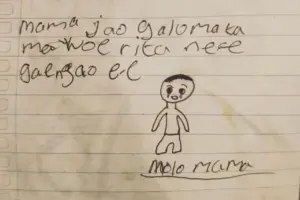 mama jao galomata
me woe rita nefe
gaengao e-c
molo mama